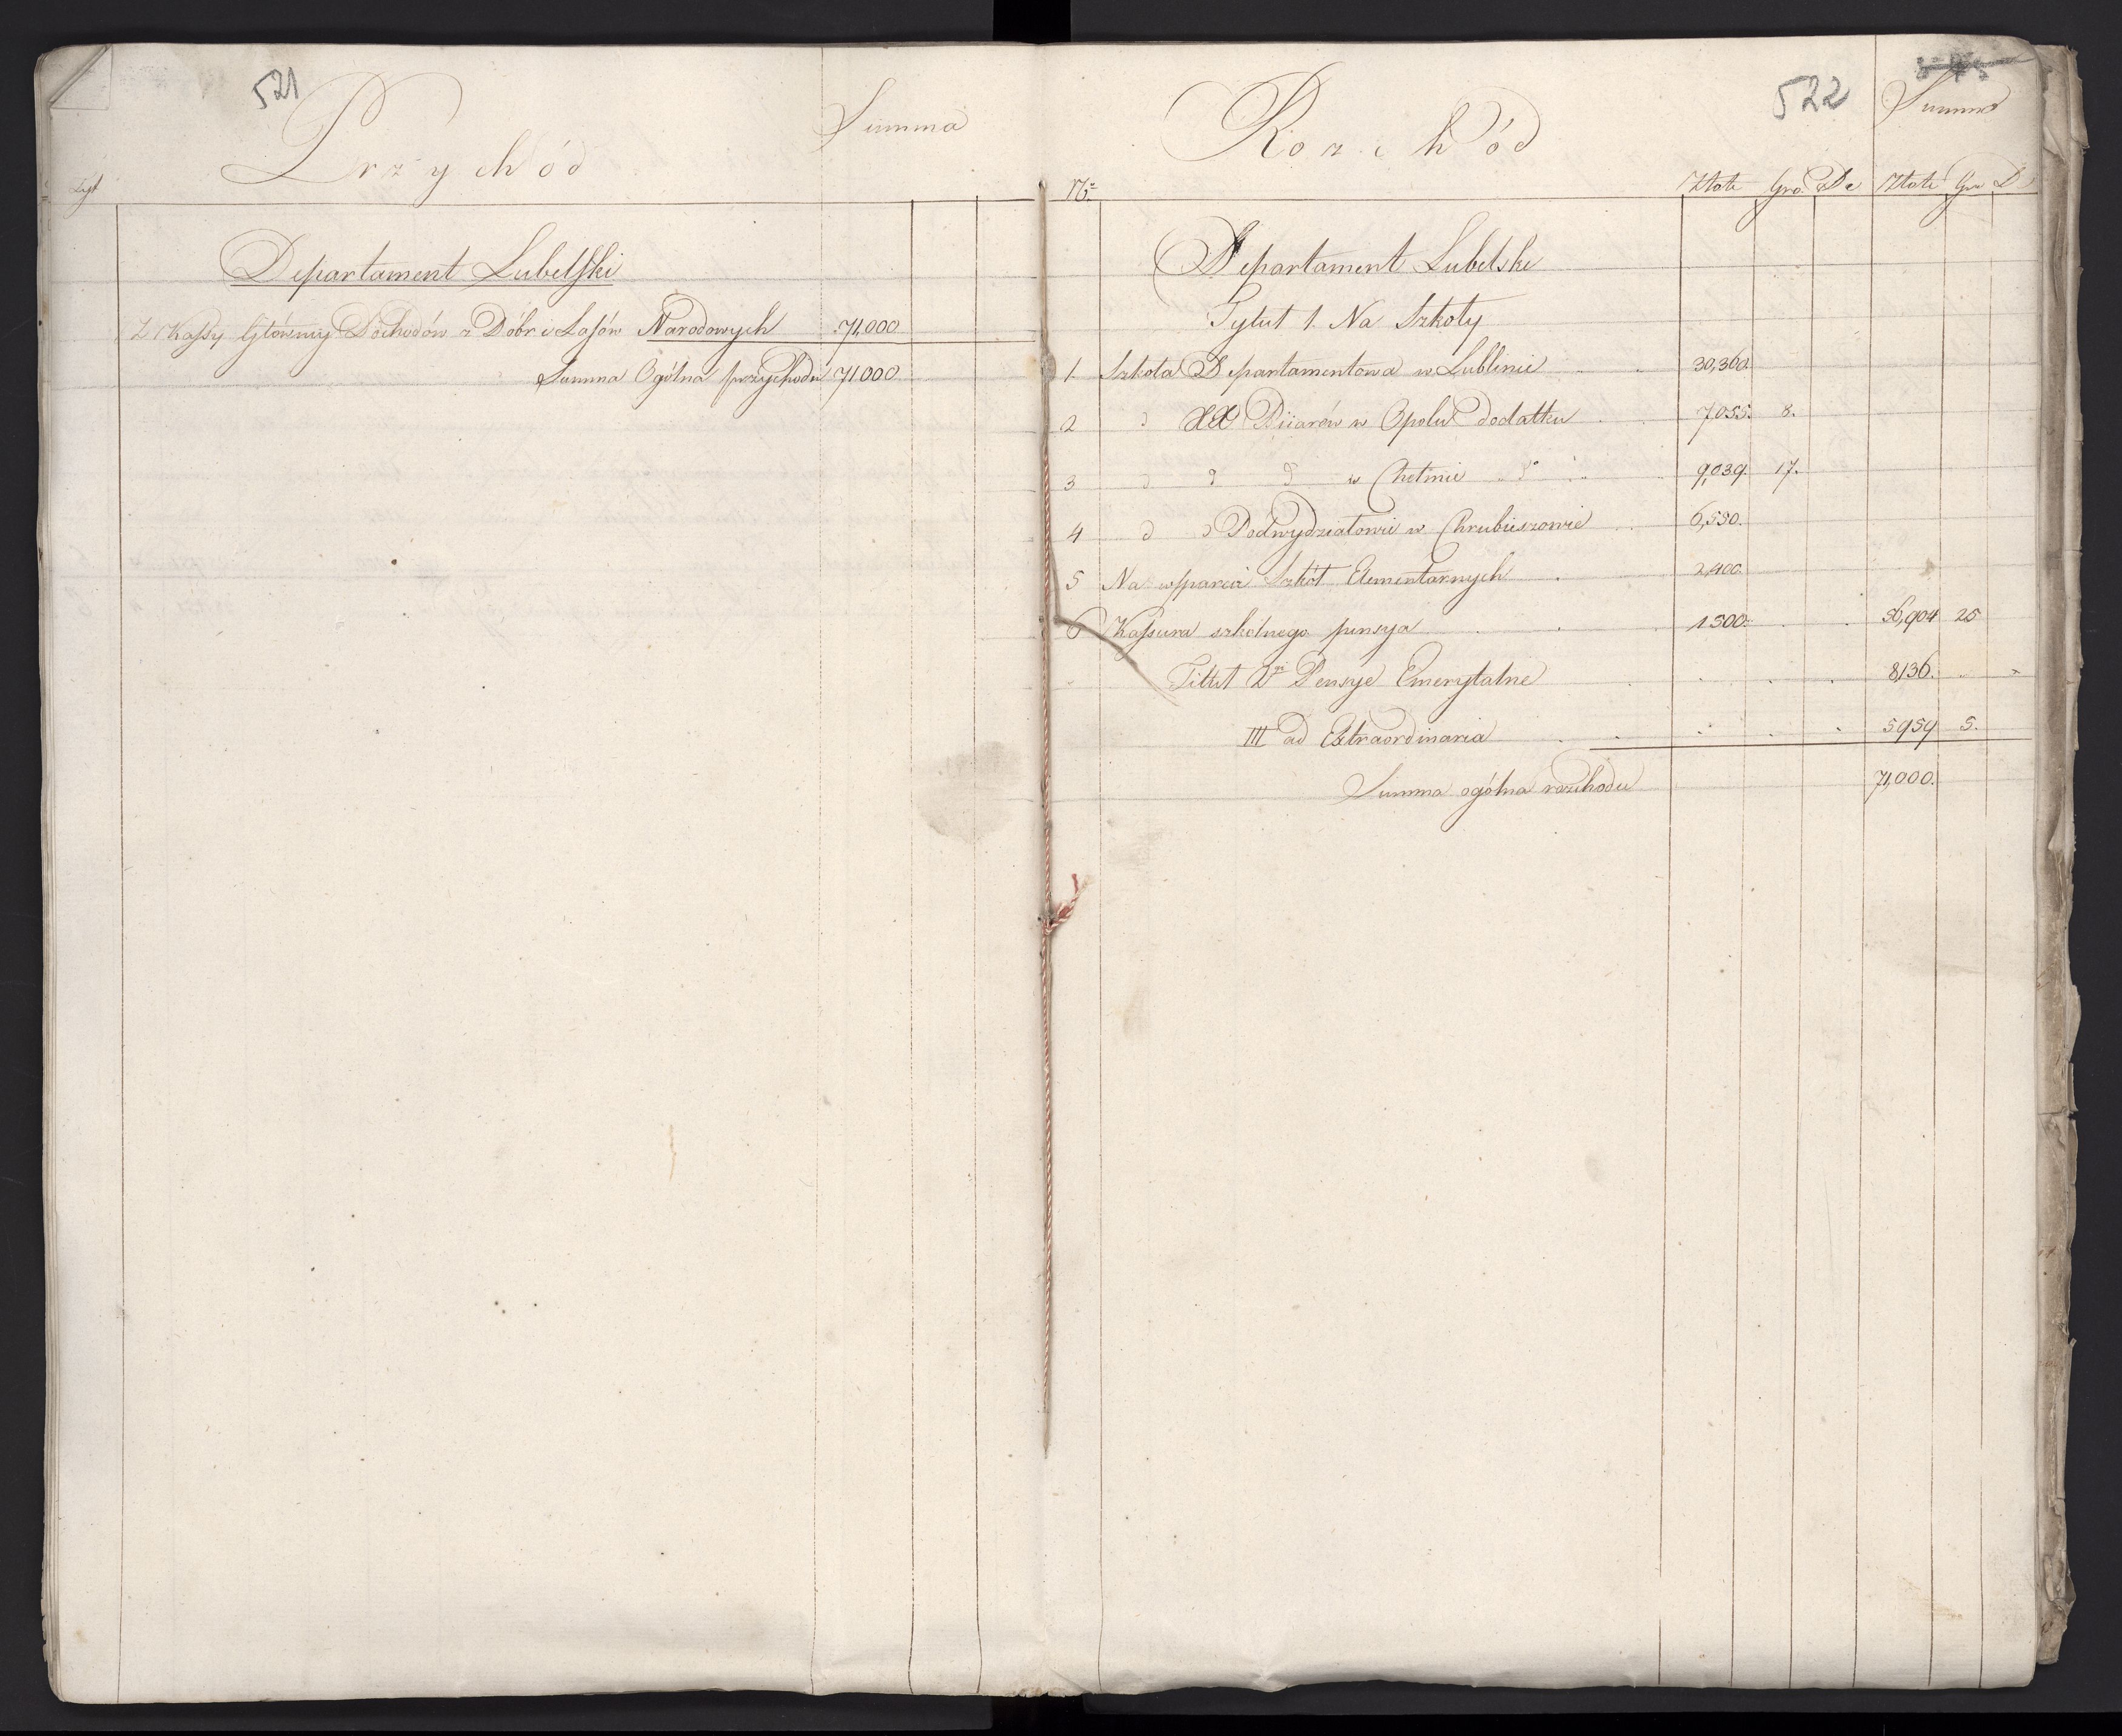 521
Przychód
Summa
Tyt
Departament Lubelski
Z Kassy Głównej Dochodów z Dóbr i Lasów Narodowych 71,000
Summa Ogólna przychodu 71000
522
Rozchód
Summa
No Złote Gro. De Złote Gro D
Departament Lubelski
Tytuł 1. Na Szkoły
1 Szkoła Departamentowa w Lublinie 30,360.
2 d XX Piiarów w Opolu dodatku 7,055. 8.
3 d d d w Chełmie do 9,039. 17.
4 d d Podwydziałowie w Chrubieszowie 6,550.
5 Na wsparcie Szkół Elementarnych 2,400.
6 Kassiera szkólnego pensya 1500. 56,904 25
Tituł 2gi Pensye Emerytalne 8,136.
III ad Extraordinaria 5959 5.
Summa ogólna rozchodu 71,000.